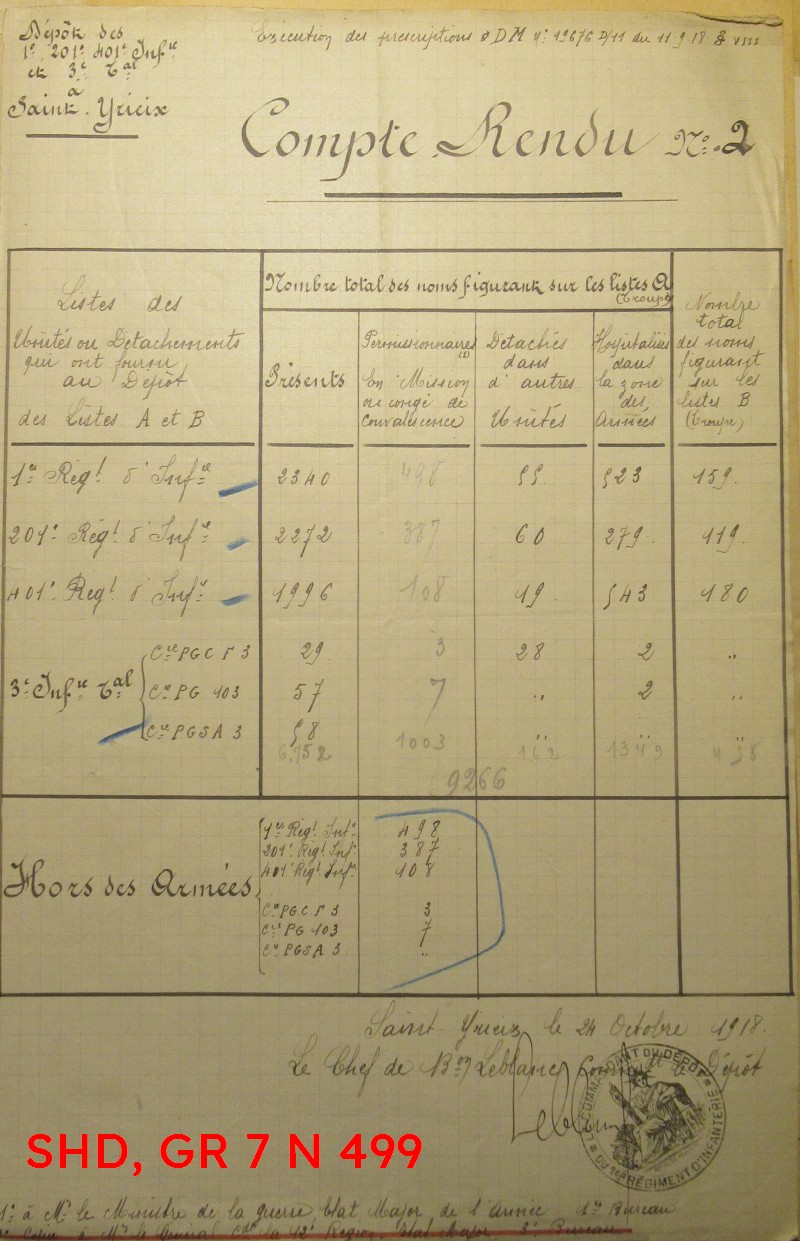 Dépôt des
1er 201e 401e Infrie
et 3e Tal
à
Saint-Yrieix
Exécution des prescriptions DM No 19676 D/11 du 11.9.18
Compte Rendu No. 2
Listes des
Unités ou Détachements
qui ont fourni
au Dépôt
des Listes A et B
Nombre total des noms figurant sur les listes A
(Troupe)
Présents
Permissionnaires
(1)
En Mission
ou congé de
Convalescence
Détachés
dans
d'autres
Unités
Hospitalisés
dans
la zone
des
Armées
Nombre
total
des noms
figurant
sur les
listes B
(Troupe)
1er Régt d'Infrie 2340 498 55 523 159
201e Régt d'Infie 2272 387 60 279 119
401e Régt d'Infie 1996 108 19 543 180
3e Infie Tal
Cie PGCF 3 29 3 28 2 "
Cie PG 103 57 7 " 2 "
Cie PGSA 3 58 " " "
6,752 1003 162 1349 458
9266
Hors des Armées
1er Régt Infie 498
201e Régt Infie 387
401e Régt Infie 108
Cie PGCF 3 3
Cie PG 103 7
Cie PGSA 3 "
Saint-Yrieix le 24 Octobre 1918.
Le Chef de Bon Leblanc Commt le Dépôt
Leblanc
LE COMMANDANT DU DÉPÔT
RÉGIMENT D'INFANTERIE
SHD, GR 7 N 499
1o à Mr le Ministre de la guerre Etat Major de l'Armée 1er Bureau
à Mr le Général Cdt la 12e Région, Etat Major 3e Bureau